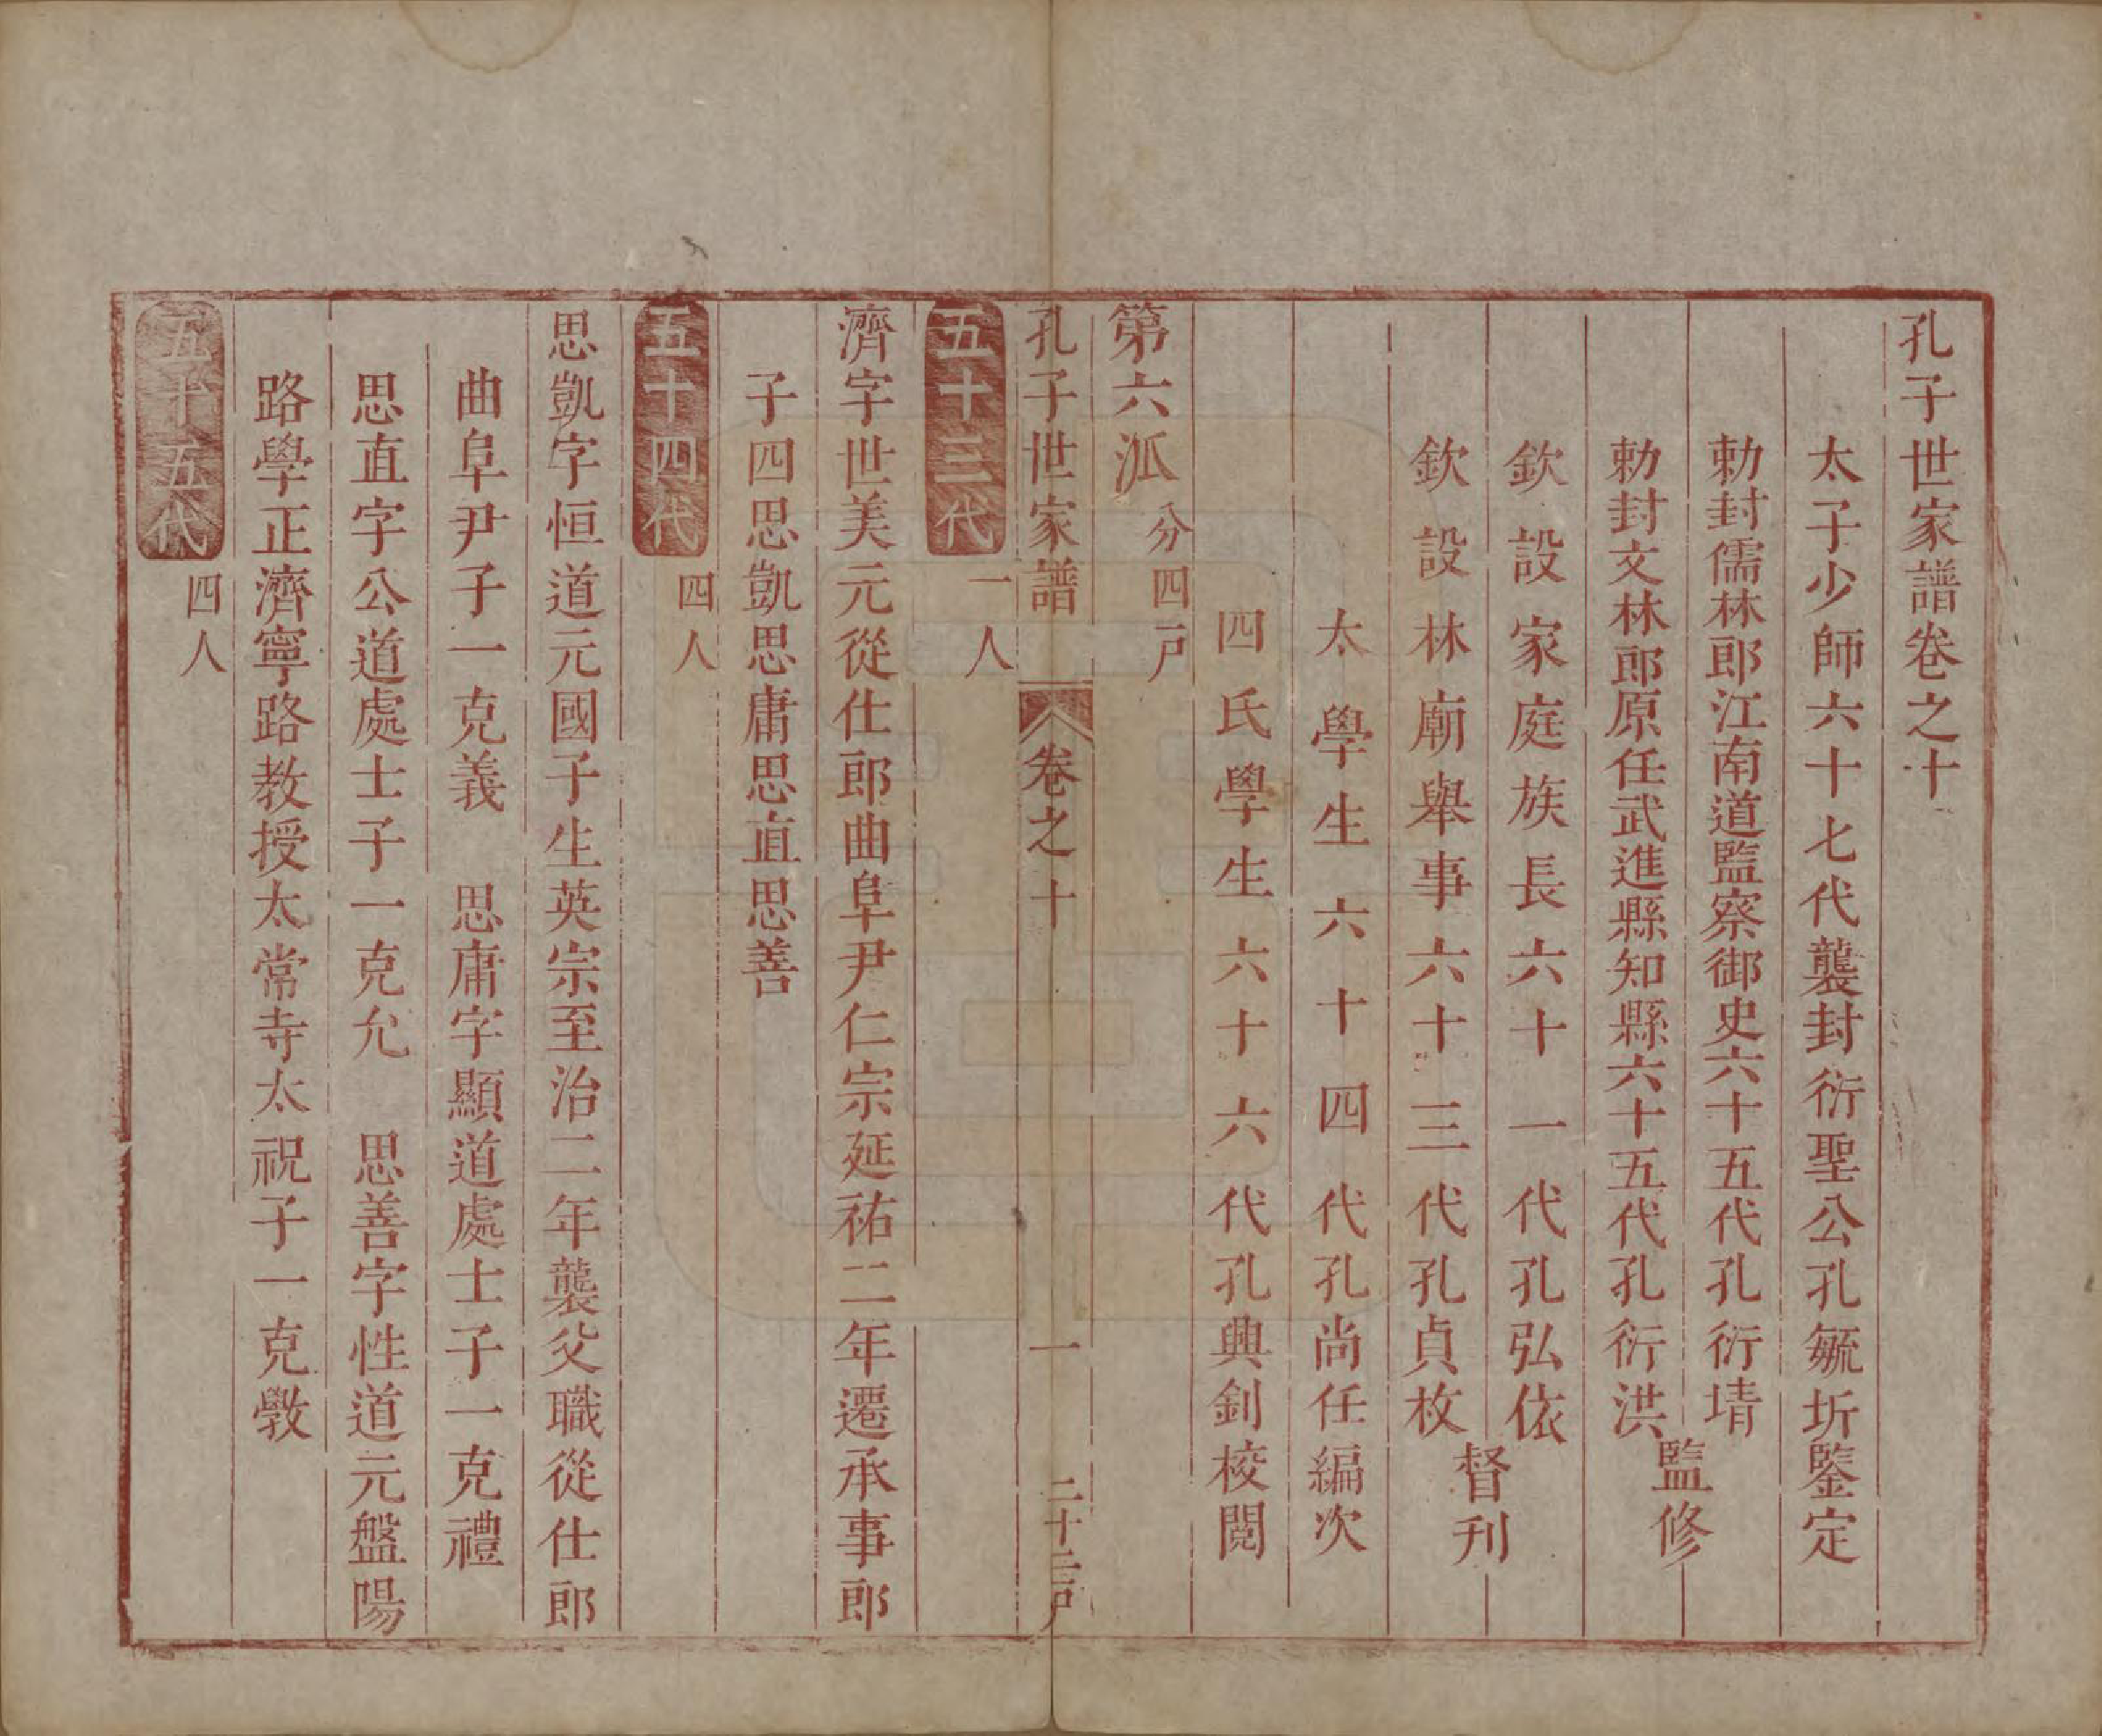 孔子世家譜卷之十
太子少師六十七代襲封衍聖公孔毓圻鑒定
勅封儒林郎江南道監察御史六十五代孔衍㙫
勅封文林郎原任武進縣知縣六十五代孔衍洪
監修
欽設家庭族長六十一代孔弘依
欽設林廟舉事六十三代孔貞枚
督刊
太學生六十四代孔尚任編次
四氏學生六十六代孔興釗校閱
第六派分四戶
孔子世家譜 卷之十 一 二十三戶
五十三代 一人
濟字世美元從仕郎曲阜尹仁宗延祐二年遷承事郎
子四思凱思庸思直思善
五十四代 四人
思凱字恒道元國子生英宗至治二年襲父職從仕郎
曲阜尹子一克義 思庸字顯道處士子一克禮
思直字公道處士子一克允 思善字性道元盤陽
路學正濟寧路教授太常寺太祝子一克斅
五十五代 四人